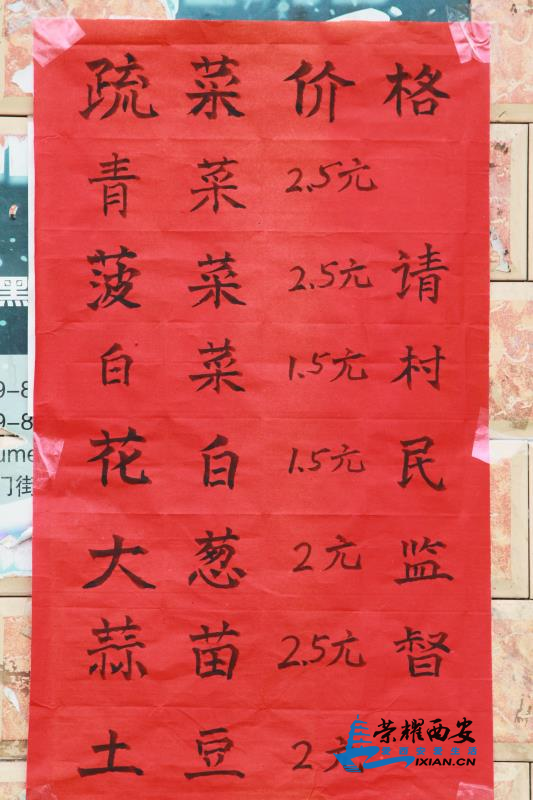 疏菜价格
青菜 2.5元
菠菜 2.5元 请
白菜 1.5元 村
花白 1.5元 民
大葱 2元 监
蒜苗 2.5元 督
土豆 2元
9-8
9-8
ume
门街
荣耀西安
IXIAN.CN